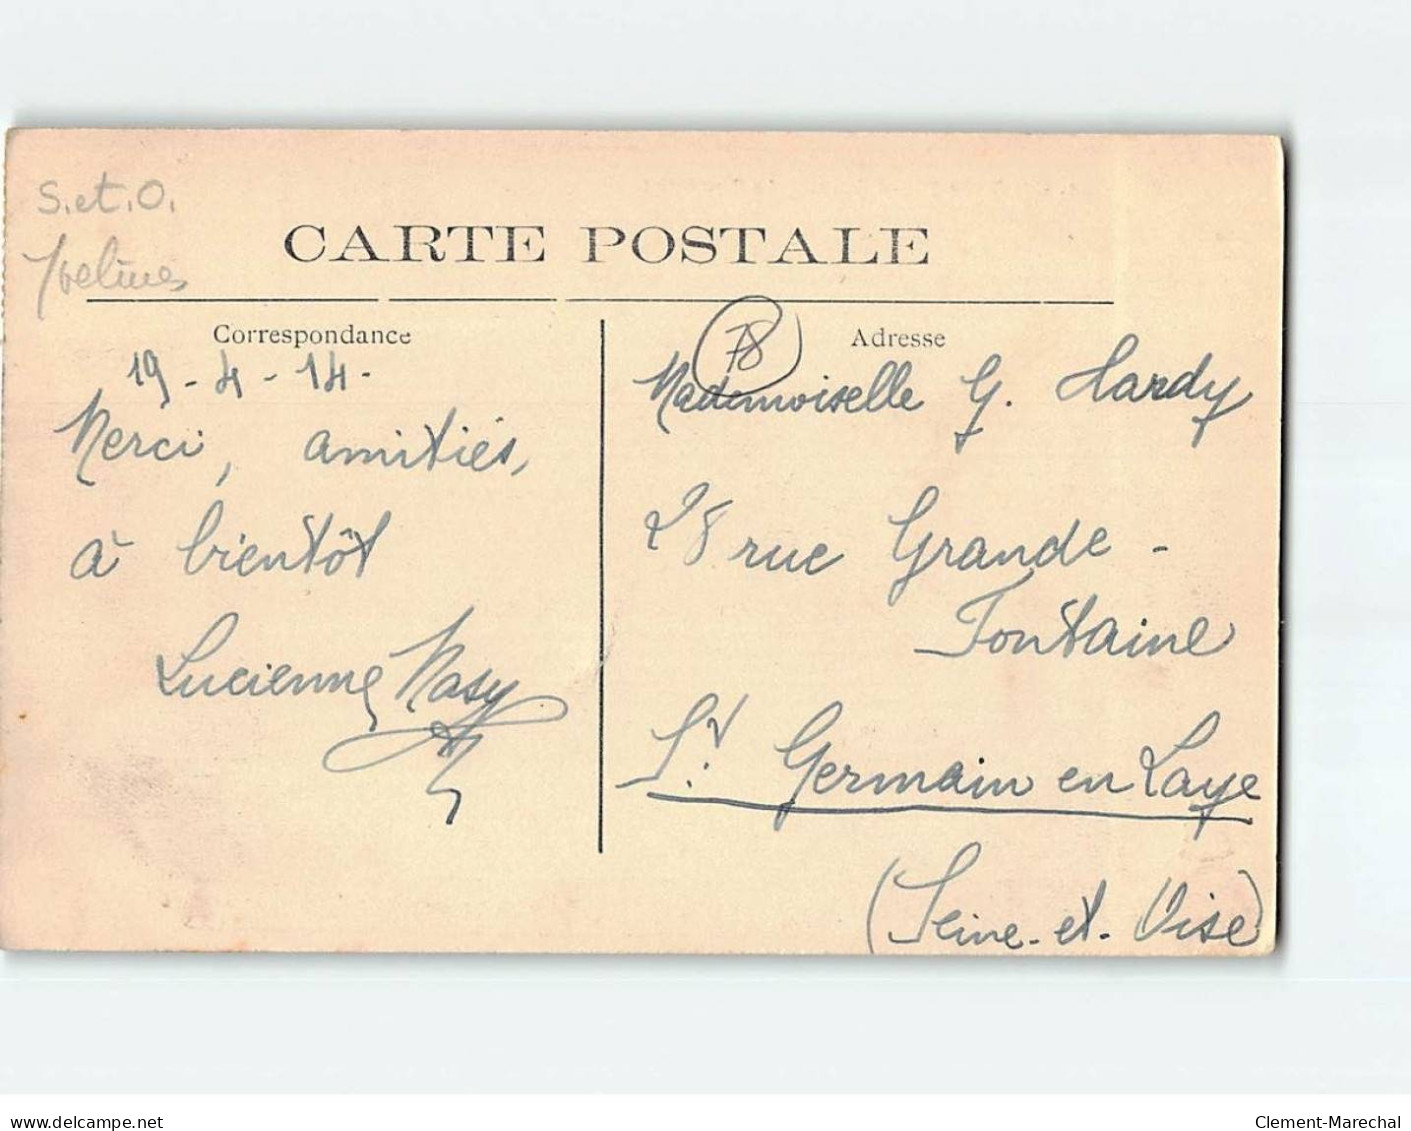 S.et.O.
Yvelines
CARTE POSTALE
Correspondance
19-4-14-
Merci, amitiés,
à bientôt
Lucienne Nasy
78
Adresse
Mademoiselle G. Hardy
28 rue Grande-
Fontaine
St. Germain en Laye
(Seine-et-Oise)
www.delcampe.net
Clement-Marechal